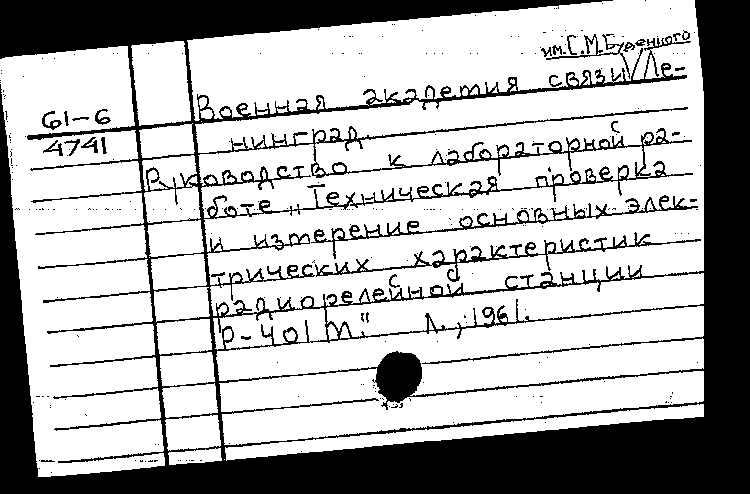 им. С.М. Буденного
61-6
4741
Военная академия связи Ле-
нинград.
Руководство к лабораторной ра-
боте „Техническая проверка
и измерение основных элек-
трических характеристик
радиорелейной станции
Р-401 М." Л., 1961.